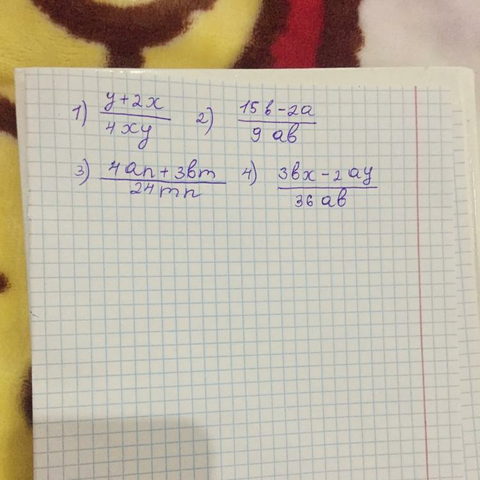 1) y+2x / 4xy 2) 15b-2a / 9ab
3) 4an+3bm / 24mn 4) 3bx-2ay / 36ab